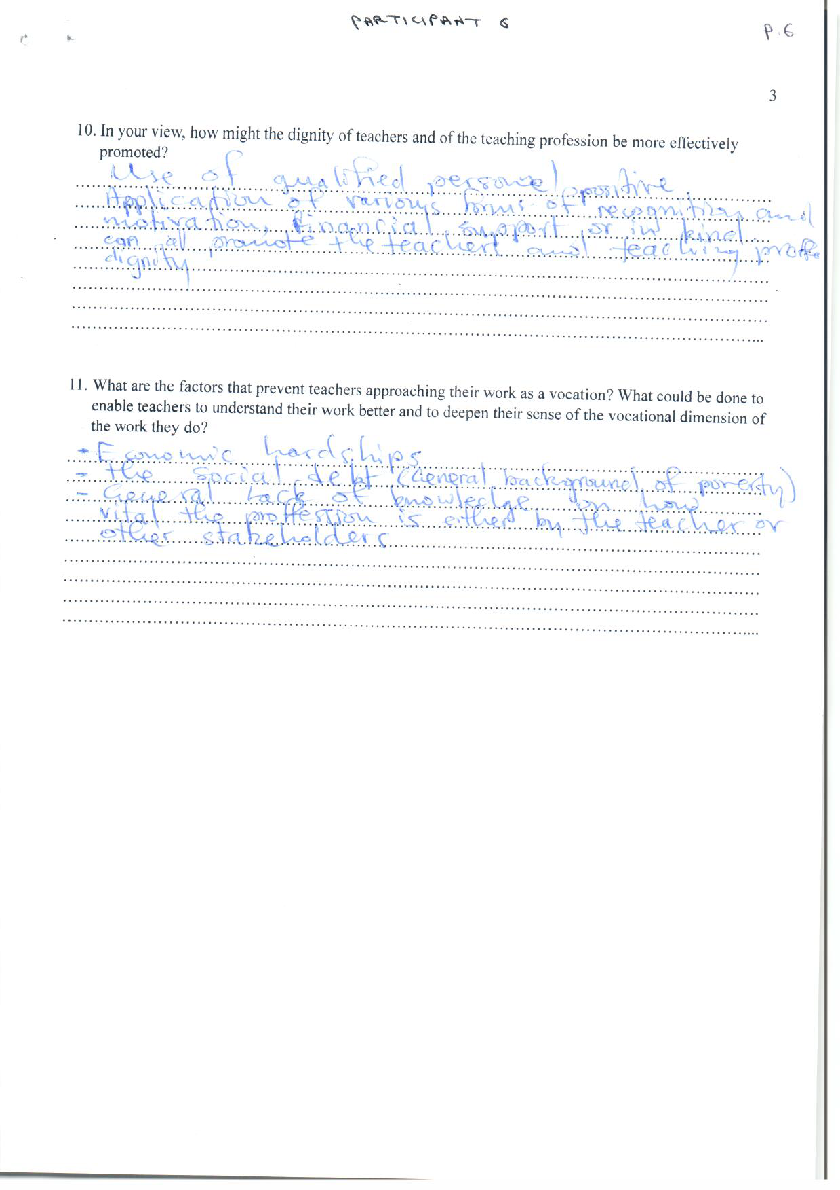 PARTICIPANT 6
P.6
3
10. In your view, how might the dignity of teachers and of the teaching profession be more effectively
promoted?
Use of qualified personel, positive
Application of various forms of recognition and
motivation, financial support or in kind
can al promote the teachers and teaching proffe
dignity
11. What are the factors that prevent teachers approaching their work as a vocation? What could be done to
enable teachers to understand their work better and to deepen their sense of the vocational dimension of
the work they do?
- Economic hardships
- The social debt (General background of poverty)
- General lack of knowledge on how
vital the proffestion is either by the teacher or
other stakeholders